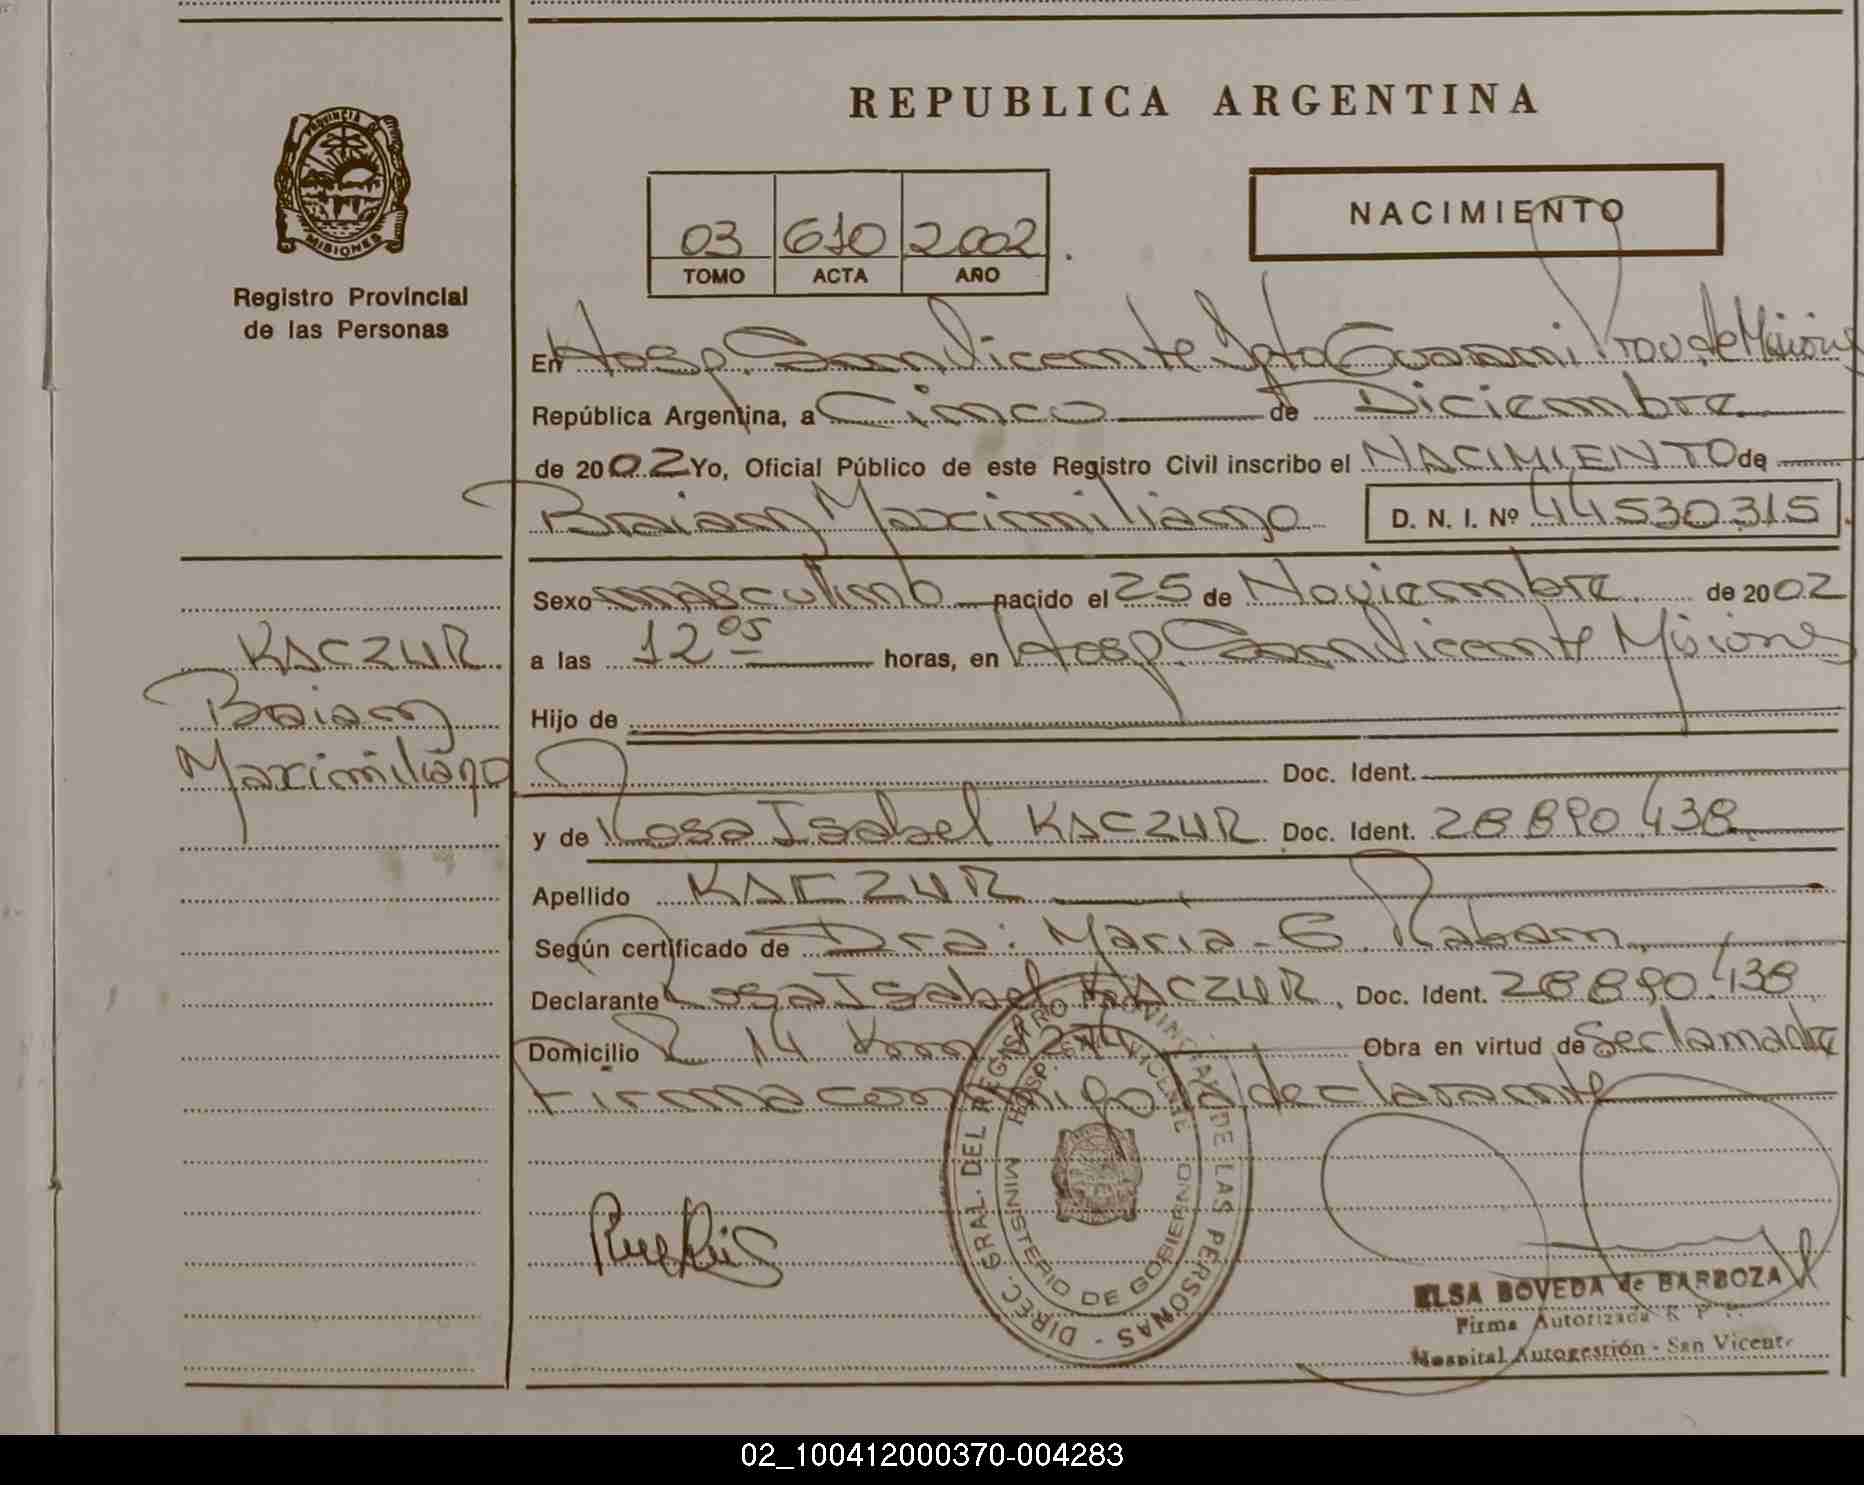 REPUBLICA ARGENTINA
PROVINCIA DE
MISIONES
Registro Provincial
de las Personas
03 610 2002
TOMO ACTA AÑO
NACIMIENTO
En Hosp. San Vicente Dpto Guaraní Prov de Misiones
República Argentina, a Cinco de Diciembre
de 2002 Yo, Oficial Público de este Registro Civil inscribo el NACIMIENTO de
Braian Maximiliano D. N. I. Nº 44530315
Sexo masculino nacido el 25 de Noviembre de 2002
a las 12 05 horas, en Hosp. San Vicente Misiones
Hijo de
Doc. Ident.
y de Rosa Isabel KACZUR Doc. Ident. 28890438
Apellido KACZUR
Según certificado de Dra: Maria - E. Raban
Declarante Rosa Isabel KACZUR, Doc. Ident. 28890438
Domicilio R 14 Km 274 Obra en virtud de Ser la madre
Firma conmigo la declarante
KACZUR
Braian
Maximiliano
DIREC. GRAL. DEL REGISTRO PROVINCIAL DE LAS PERSONAS -
HOSP. SAN VICENTE
MINISTERIO DE GOBIERNO
ELSA BOVEDA de BARBOZA
Firma Autorizada R P
Hospital Autogestión - San Vicente
02_100412000370-004283